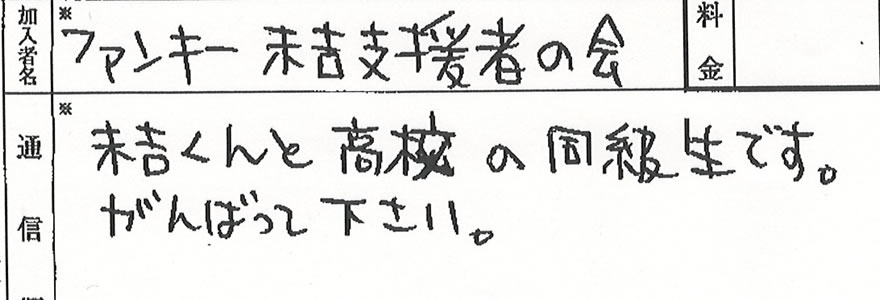 加入者名
※
ファンキー 末吉支援者の会
料金
通信
※
末吉くんと高校の同級生です。
がんばって下さい。